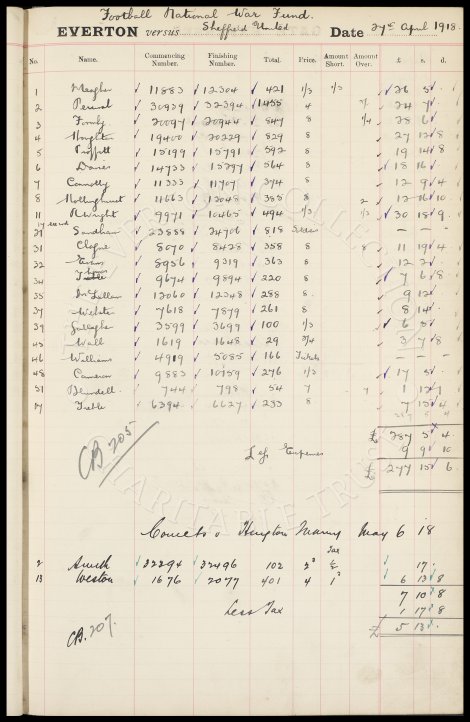 Football National War Fund.
EVERTON versus Sheffield United Date 27th April 1918.
No. Name. Commencing Number. Finishing Number. Total. Price. Amount Short. Amount Over. £ s. d.
1 Meagher 11883 12304 421 1/3 1/3 26 5
2 Percival 30939 32394 1455 4 24 7
3 Formby 20097 20944 847 8 1/4 28 6
4 Houghton 19400 20229 829 8 27 12 8
5 Proffitt 15199 15791 592 8 19 14 8
6 Davies 14733 15297 564 8 18 16
7 Connolly 11333 11707 374 8 12 9 4
8 Hollinghurst 8 2 12 16 10
11 R Wright 9971 10465 494 1/3 1/3 30 18 9
29 Sandham 23888 24706 818
31 Clegne 8070 8428 358 8 8 11 19 4
32 Evans 8956 9319 363 8 12 2
34 9674 9894 220 8 7 6 8
35 McLellan 12060 12348 288 8 9 12
37 Webster 7618 7879 261 8 8 14
39 Gallagher 3599 3699 100 1/3 6 5
45 Wall 1619 1648 29 3 7 8
46 Williams 4919 5085 166
48 Cameron 9883 10159 276 1/3 17 5
51 Blundell 744 798 54 7 7 1
57 Treble 6394 6627 233 8 7 15 4
£ 287 5 4
CB 205
L of Expenses 9 9 10
£ 277 15 6
May 6 18
Tax
2 32394 32496 102 17
13 Weston 1676 2077 401 4 6 13 8
7 10 8
Less Tax 1 17 8
CB. 207. £ 5 13
LIVERPOOL
COLLECTION
CHARITABLE TRUST